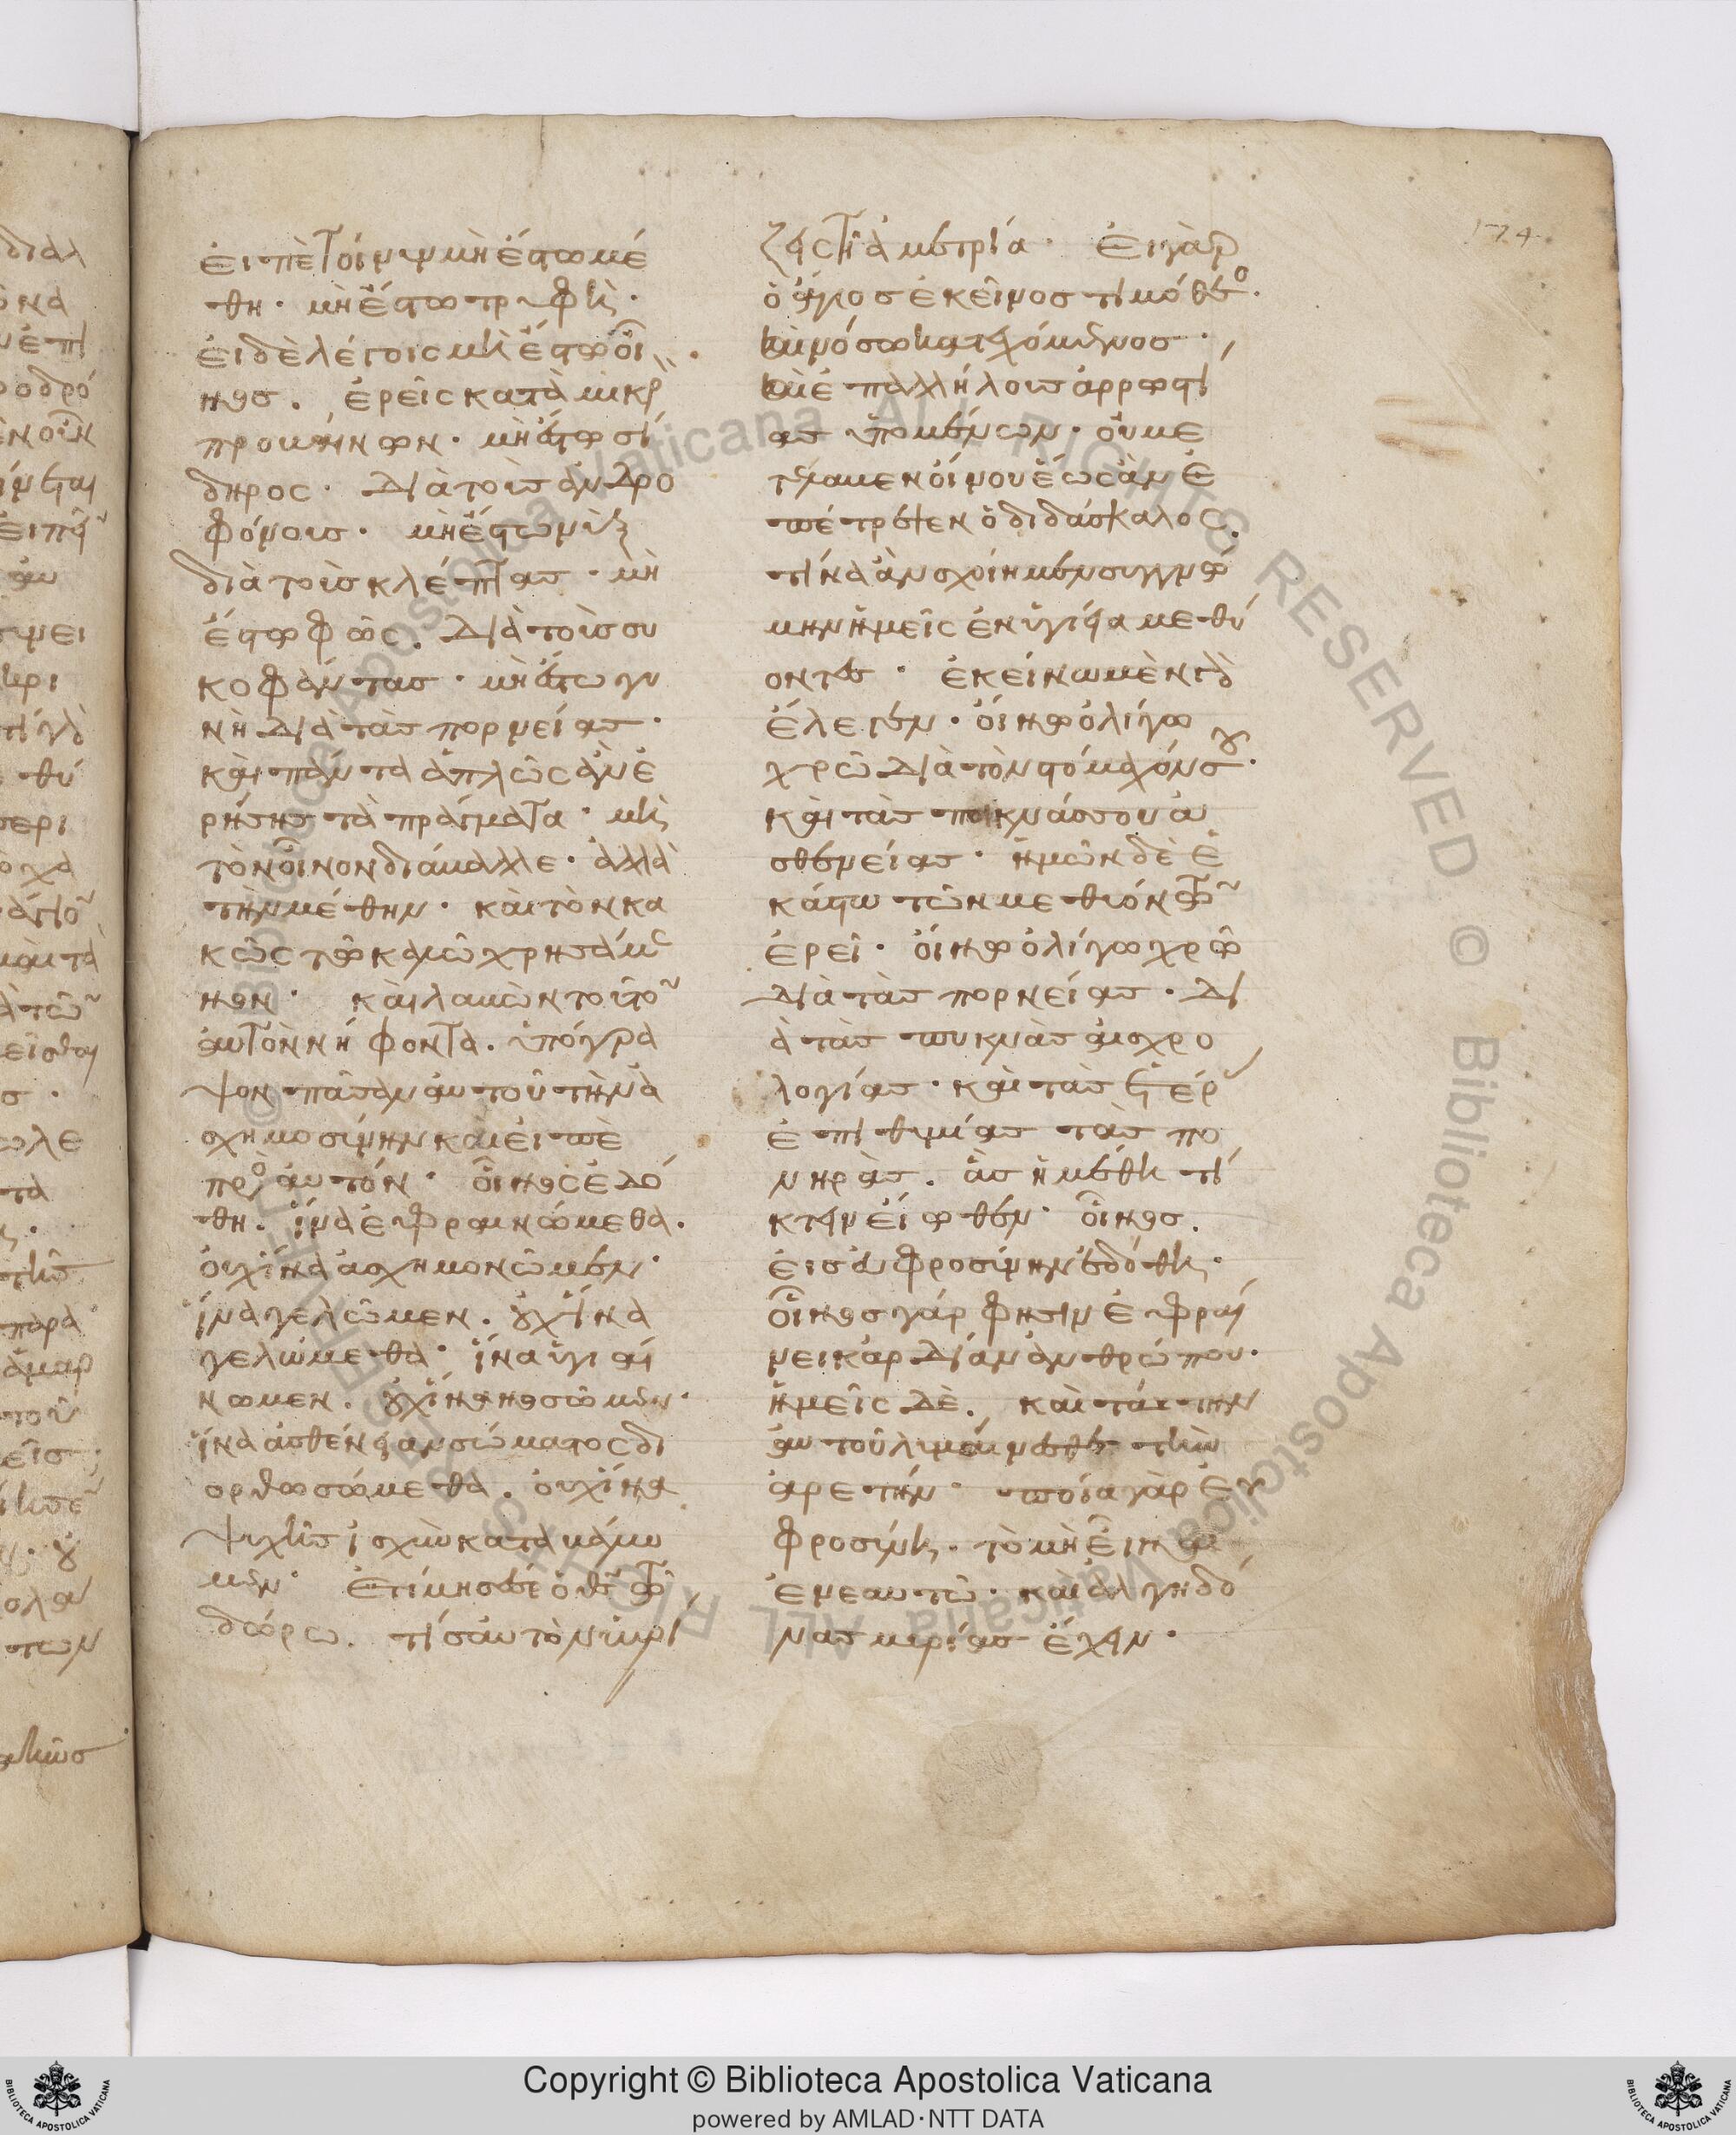 174
ἐιπὲ τοίνυν μὴ ἔστω μέ
θη· μὴ ἔστω τρυφή·
ἐι δὲ λέγοις μὴ ἔστω οἶ
νος. ἐρεῖς κατὰ μικρ
προκόπτων· μὴ ἔστω σί
δηρος· διὰ τοὺς ἀνδρο
φόνους· μὴ ἔστω νὺξ
διὰ τοὺς κλέπτας· μὴ
ἔστω φῶς. διὰ τοὺς συ
κοφάντας· μὴ ἔστω γυ
νὴ διὰ τὰς πορνείας·
καὶ πάντα ἁπλῶς ἀναι
ρήσεις τὰ πράγματα· μὴ
τὸν οἶνον διάβαλλε· ἀλλὰ
τὴν μέθην· καὶ τὸν κα
κῶς τῶ καλῶ χρησάμε
νον· καὶ λαβὼν τοῦτο
αὐτὸν νήφοντα. ὑπόγρα
ψον πᾶσαν αὐτοῦ τὴν ἀ
σχημοσύνην καὶ ἐιπὲ
πρὸ αὐτόν· οἶνος ἐδό
θη. ἵνα ἐυφρανώμεθα.
οὐχ ἵνα ἀσχημονῶμεν·
ἵνα γελῶμεν. οὐχ ἵνα
γελώμεθα· ἵνα ὑγιαί
νωμεν. οὐχ ἵνα νοσῶμεν·
ἵνα ἀσθένειαν σώματος δι
ορθωσώμεθα. οὐχ ἵνα
ψυχῆς ἰσχὺν καταβάλω
μεν· Ἐτίμησέ σε ὁ θς τῶ
δώρω. τί σαυτὸν ὑβρί
ζεις τῆ ἀμετρία· Ἐι γὰρ
ὁ ἅγιος ἐκεῖνος τιμόθεο·
καὶ νόσω κατεχόμενος·
καὶ ἐπαλλήλους ἀρρωστί
ας ὑπομένων· οὐ με
τέλαβεν οἴνου ἕως ἂν ἐ
πέτρεψεν ὁ διδάσκαλος.
τίνα ἂν σχοίημεν συγγνώ
μην ἡμεῖς ἐν ὑγιεία μεθύ
οντες· ἐκείνω μὲν γὰρ
ἔλεγεν· οἴνω ὀλίγω
χρῶ διὰ τὸν στόμαχόν σου·
καὶ τὰς πυκνάς σου ἀ
σθενείας· ἡμῶν δὲ ἑ
κάστω τῶν μεθυόντων
ἐρεῖ· οἴνω ὀλίγω χρῶ
διὰ τὰς πορνείας· δι
ὰ τὰς πυκνὰς αἰσχρο
λογίας· καὶ τὰς ἑτέρ
ἐπιθυμίας τὰς πο
νηράς. ἃς ἡ μέθη τί
κτειν εἴωθεν· οἶνος.
εἰς εὐφροσύνην ἐδόθη·
οἶνος γάρ φησιν ἐυφραί
νει καρδίαν ἀνθρώπου·
ἡμεῖς δὲ. καὶ ταύτην
αὐτοῦ λυμαίνεσθε τὴν
ἀρετήν· ποία γὰρ ἐυ
φροσύνη. τὸ μὴ εἶναι
ἐν ἑαυτῶ· καὶ ἀλγηδό
νας μυρίας ἔχειν·
Copyright © Biblioteca Apostolica Vaticana
powered by AMLAD·NTT DATA